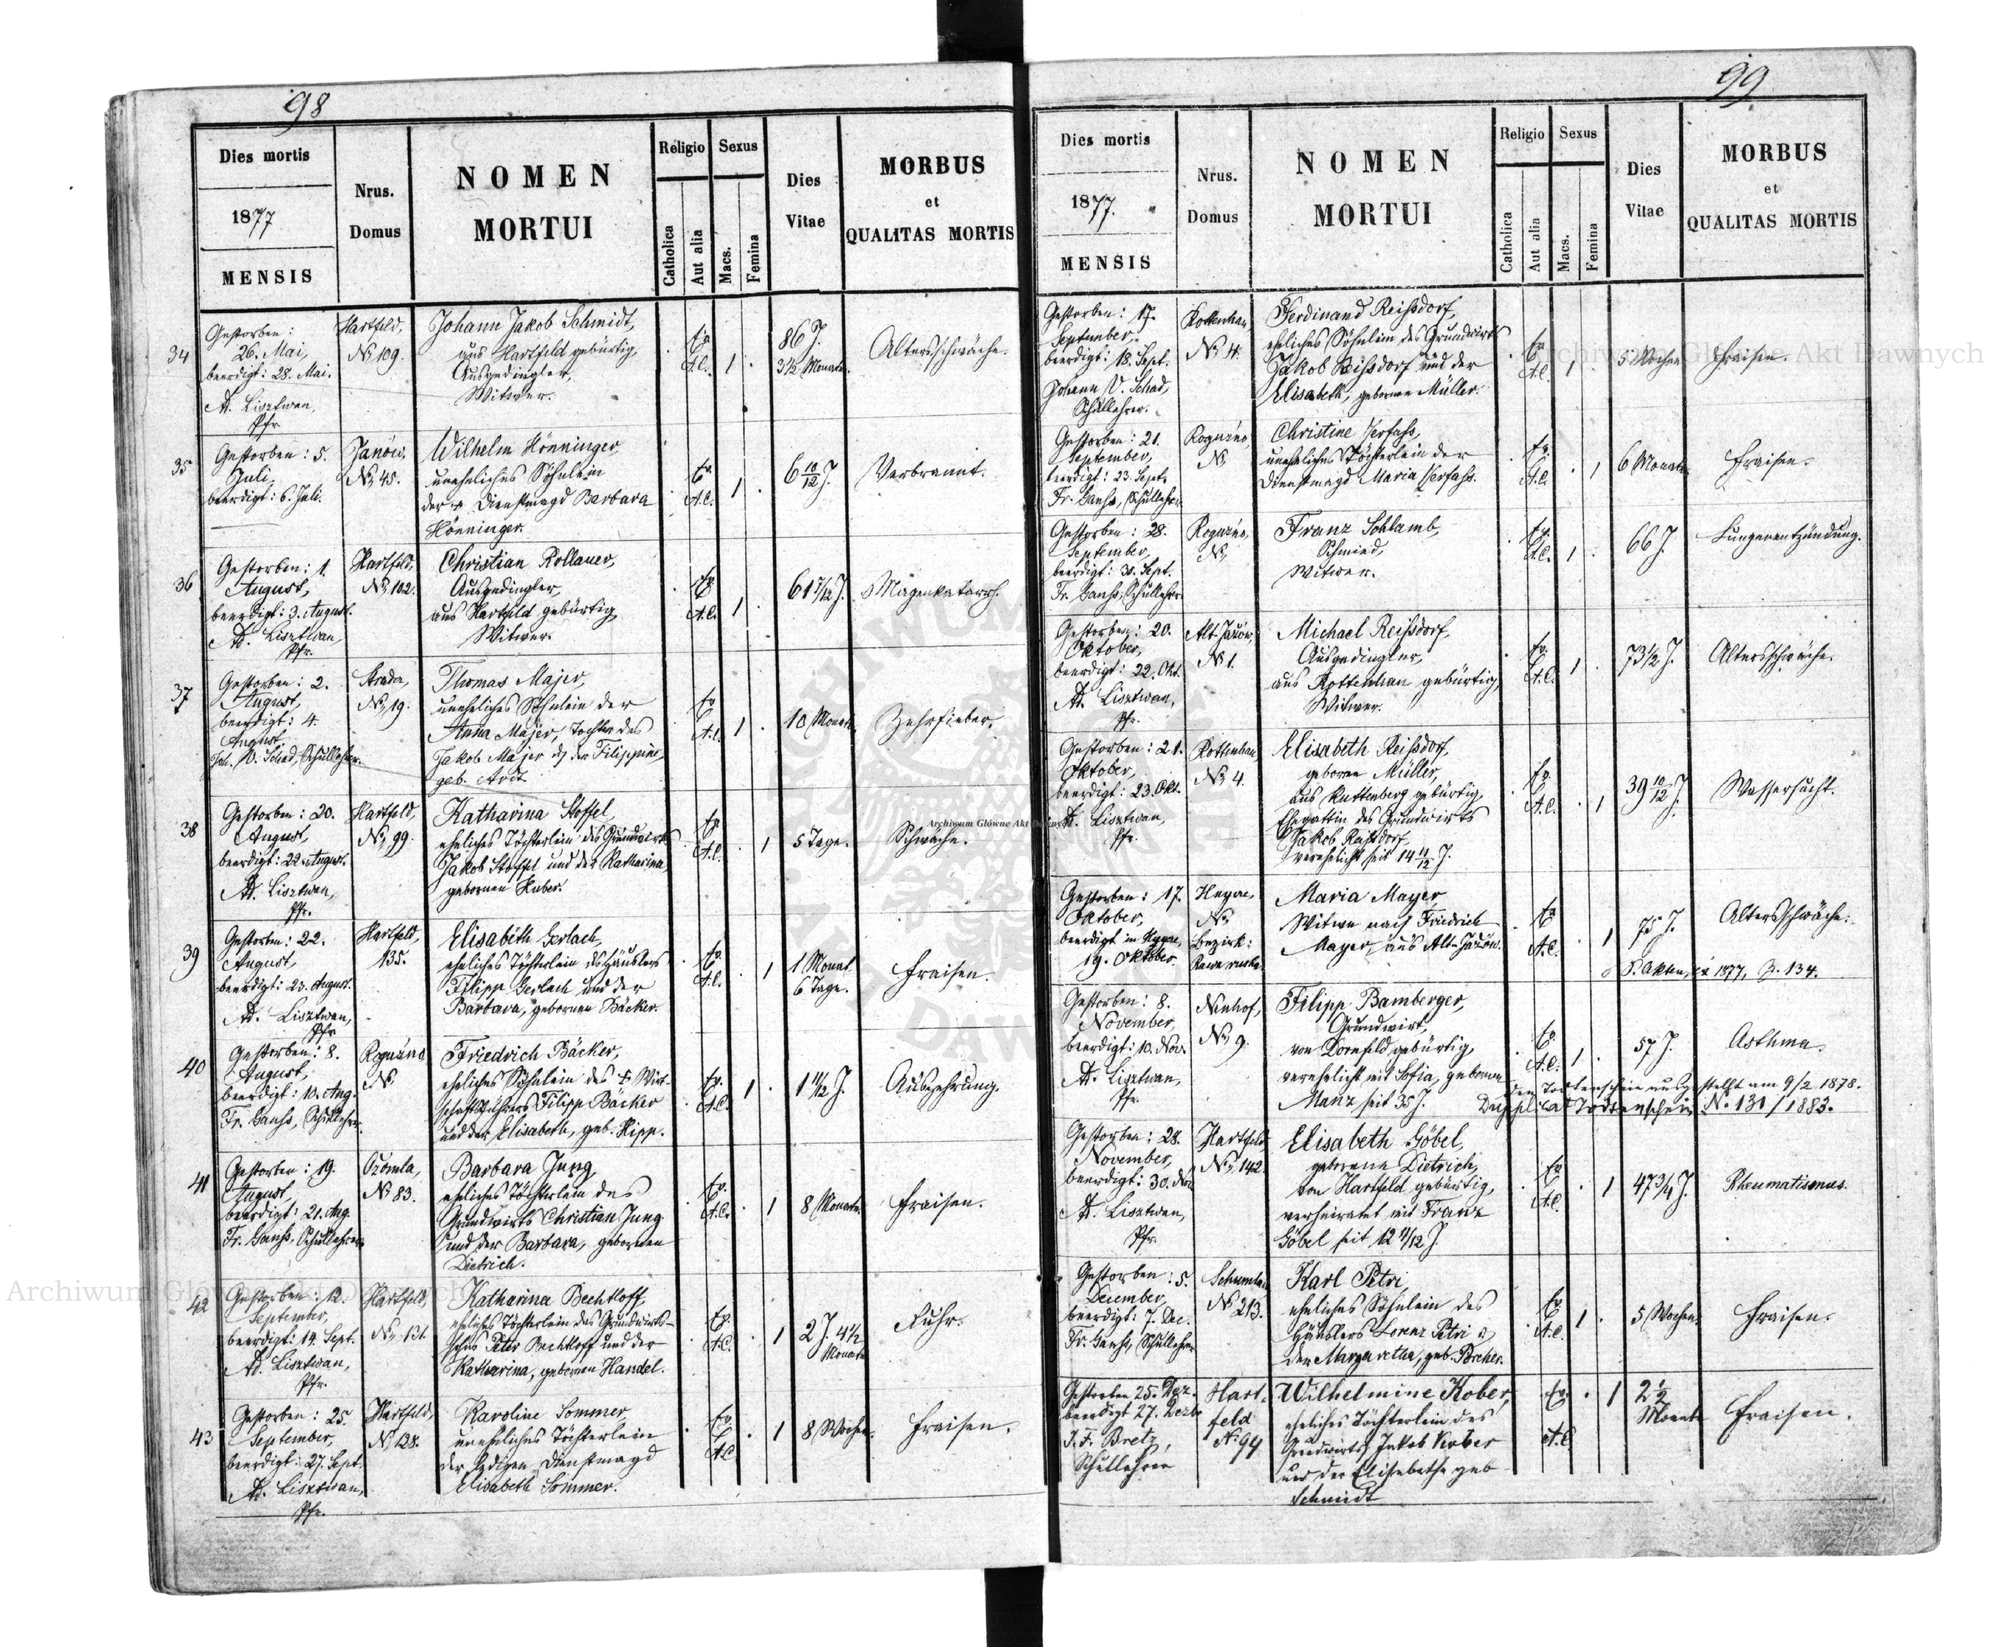 98
Dies mortis
1877
MENSIS
Nrus.
Domus
NOMEN
MORTUI
Religio
Catholica
Aut alia
Sexus
Macs.
Femina
Dies
Vitae
MORBUS
et
QUALITAS MORTIS
34
Gestorben:
26. Mai,
beerdigt: 28. Mai.
A. Lisztwan,
Pfr.
Hartfeld,
No 109.
Johann Jakob Schmidt,
aus Hartfeld gebürtig,
Ausgedingler,
Witwer.
Ev.
A.C.
1
86 J.
3½ Monate.
Altersschwäche.
35
Gestorben: 5.
Juli,
beerdigt: 6. Juli.
Janów,
No 45.
Wilhelm Hönninger,
uneheliches Söhnlein
der Dienstmagd Barbara
Hönninger.
Ev.
A.C.
1
6 10/12 J.
Verbrannt.
36
Gestorben: 1.
August,
beerdigt: 3. August.
A. Lisztwan
Pfr.
Hartfeld,
No 102.
Christian Kollauer,
Ausgedingler,
aus Hartfeld gebürtig,
Witwer.
Ev.
A.C.
1
61 7/12 J.
Magenkatarrh.
37
Gestorben: 2.
August,
beerdigt: 4.
August
Joh. V. Schad, Schullehrer.
No 19.
Thomas Majer,
uneheliches Söhnlein der
Anna Majer, Tochter des
Jakob Majer der Filippine,
geb.
Ev.
A.C.
1
10 Monate.
Zehrfieber.
38
Gestorben: 20.
August,
beerdigt: 22. August.
A. Lisztwan,
Pfr.
Hartfeld,
No 99.
Katharina Stoffel,
eheliches Töchterlein des Grundwirts
Jakob Stoffel und der Katharina,
gebornen Huber.
Ev.
A.C.
1
5 Tage.
Schwäche.
39
Gestorben: 22.
August,
beerdigt: 23. August.
A. Lisztwan,
Pfr.
Hartfeld,
135.
Elisabeth Gerlach,
eheliches Töchterlein des Häuslers
Filipp Gerlach und der
Barbara, gebornen Bäcker.
Ev.
A.C.
1
1 Monat
6 Tage.
Fraisen.
40
Gestorben: 8.
August,
beerdigt: 10. Aug.
Fr. Ganss, Schullehrer.
Rogużno
No
Friedrich Bäcker,
eheliches Söhnlein des Wirt-
schaftsführers Filipp Bäcker
und der Elisabeth, geb. Hipp.
Ev.
A.C.
1
1 11/12 J.
Auszehrung.
41
Gestorben: 19.
August,
beerdigt: 21. Aug.
Fr. Ganss, Schullehrer.
Ożomla,
No 83.
Barbara Jung,
eheliches Töchterlein des
Grundwirts Christian Jung
und der Barbara, gebornen
Dietrich.
Ev.
A.C.
1
8 Monate.
Fraisen.
42
Gestorben: 12.
September,
beerdigt: 14. Sept.
A. Lisztwan,
Pfr.
Hartfeld,
No 131.
Katharina Bechtloff,
eheliches Töchterlein des Grundwirts-
sohns Peter Bechtloff und der
Katharina, gebornen Handel.
Ev.
A.C.
1
2 J. 4½
Monate
Ruhr.
43
Gestorben: 25.
September,
beerdigt: 27. Sept.
A. Lisztwan,
Pfr.
Hartfeld,
No 128.
Karoline Sommer,
uneheliches Töchterlein
der ledigen Dienstmagd
Elisabeth Sommer.
Ev.
A.C.
1
8 Wochen.
Fraisen.
99
Dies mortis
1877.
MENSIS
Nrus.
Domus
NOMEN
MORTUI
Religio
Catholica
Aut alia
Sexus
Macs.
Femina
Dies
Vitae
MORBUS
et
QUALITAS MORTIS
Gestorben: 17.
September,
beerdigt: 18. Sept.
Johann V. Schad,
Schullehrer.
Rottenhan,
No 4.
Ferdinand Reißdorf,
eheliches Söhnlein des Grundwirts
Jakob Reißdorf und der
Elisabeth, gebornen Müller.
Ev.
A.C.
1
5 Wochen
Fraisen.
Gestorben: 21.
September,
beerdigt: 23. Sept.
Fr. Ganss, Schullehrer.
Rogużno,
No
Christine Serfass,
uneheliches Töchterlein der
Dienstmagd Maria Serfass.
Ev.
A.C.
1
6 Monate
Fraisen.
Gestorben: 28.
September,
beerdigt: 30. Sept.
Fr. Ganss, Schullehrer
Rogużno,
No
Franz Schlamb,
Schmied,
Witwer.
Ev.
A.C.
1
66 J.
Lungenentzündung.
Gestorben: 20.
Oktober,
beerdigt: 22. Okt.
A. Lisztwan,
Pfr.
Alt-Jażów,
No 1.
Michael Reißdorf,
Ausgedingler,
aus Rottenhan gebürtig,
Witwer.
Ev.
A.C.
1
73½ J.
Altersschwäche.
Gestorben: 21.
Oktober,
beerdigt: 23. Okt.
A. Lisztwan,
Pfr.
Rottenhan
No 4.
Elisabeth Reißdorf,
geboren Müller,
aus Kuttenberg gebürtig,
Ehegattin des Grundwirts
Jakob Reißdorf,
verehelicht seit 14 11/12 J.
Ev.
A.C.
1
39 10/12 J.
Wassersucht.
Gestorben: 17.
Oktober,
beerdigt in
19. Oktober
No
Bezirk:
Rawa ruska.
Maria Mayer,
Witwe nach Friedrich
Mayer, aus Alt-Jażów.
Ev.
A.C.
1
75 J.
Altersschwäche.
S. Akten, ex 1877, Z. 134.
Gestorben: 8.
November,
beerdigt: 10. Nov.
A. Lisztwan,
Pfr.
Neuhof,
No 9.
Filipp Bamberger,
Grundwirt,
von Dornfeld gebürtig,
verehelicht mit Sofia, geboren
Manz seit 35 J.
Ev.
A.C.
1
57 J.
Asthma.
Den Todtenschein ausgestellt am 9/2 1878.
Duplicat Todtenschein No 131/1883.
Gestorben: 28.
November,
beerdigt: 30. Nov
A. Lisztwan,
Pfr.
Hartfeld,
No 142.
Elisabeth Göbel,
geborene Dietrich,
von Hartfeld gebürtig,
verheiratet mit Franz
Göbel seit 12 11/12 J.
Ev.
A.C.
1
47¾ J.
Rheumatismus.
Gestorben: 5.
December,
beerdigt: 7. Dec.
Fr. Ganss, Schullehrer
Schumlau
No 213.
Karl Petri,
eheliches Söhnlein des
Häuslers Lorenz Petri &
der Margaretha, geb. Brcher.
Ev.
A.C.
1
5 Wochen.
Fraisen.
Gestorben 25. Dez.
beerdigt 27. Dezbr
J. F. Bretz,
Schullehrer
Hart-
feld
No 94
Wilhelmine Kober,
eheliches Töchterlein des
Grundwirts Jakob Kober
und der Elisabetha geb
Schmidt
Ev.
A.C.
1
2½
Monate
Fraisen.
Archiwum Główne Akt Dawnych
Archiwum Główne Akt Dawnych
Archiwum Główne Akt Dawnych